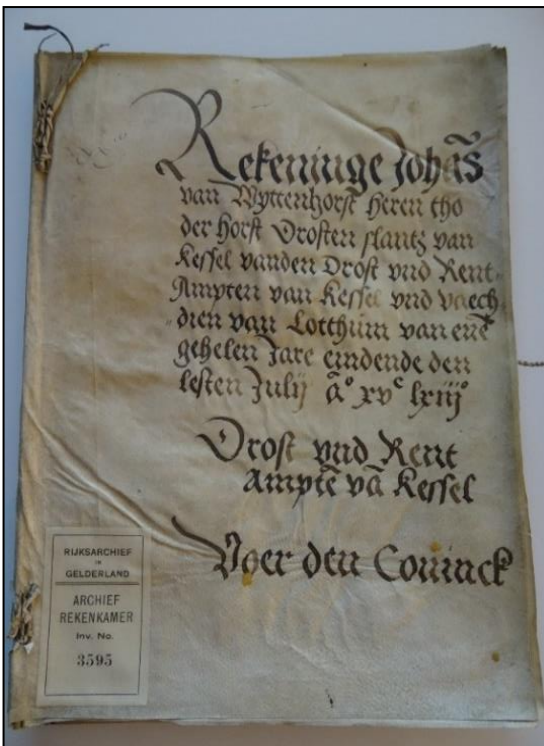 Rekeninge Johãs
van Wyttenhorst Heren tho
der Horst Drosten slantz van
Kessel vanden Drost vnd Rent-
Ampten van Kessel vnd vaech-
-dien van Lotthum van enē
gehelen Jare eindende den
lesten Julij a° xvᶜ lxiij°
Drost vnd Rent
Amptē vā Kessel
Voer den Coninck
RIJKSARCHIEF
IN
GELDERLAND
ARCHIEF
REKENKAMER
Inv. No.
3595